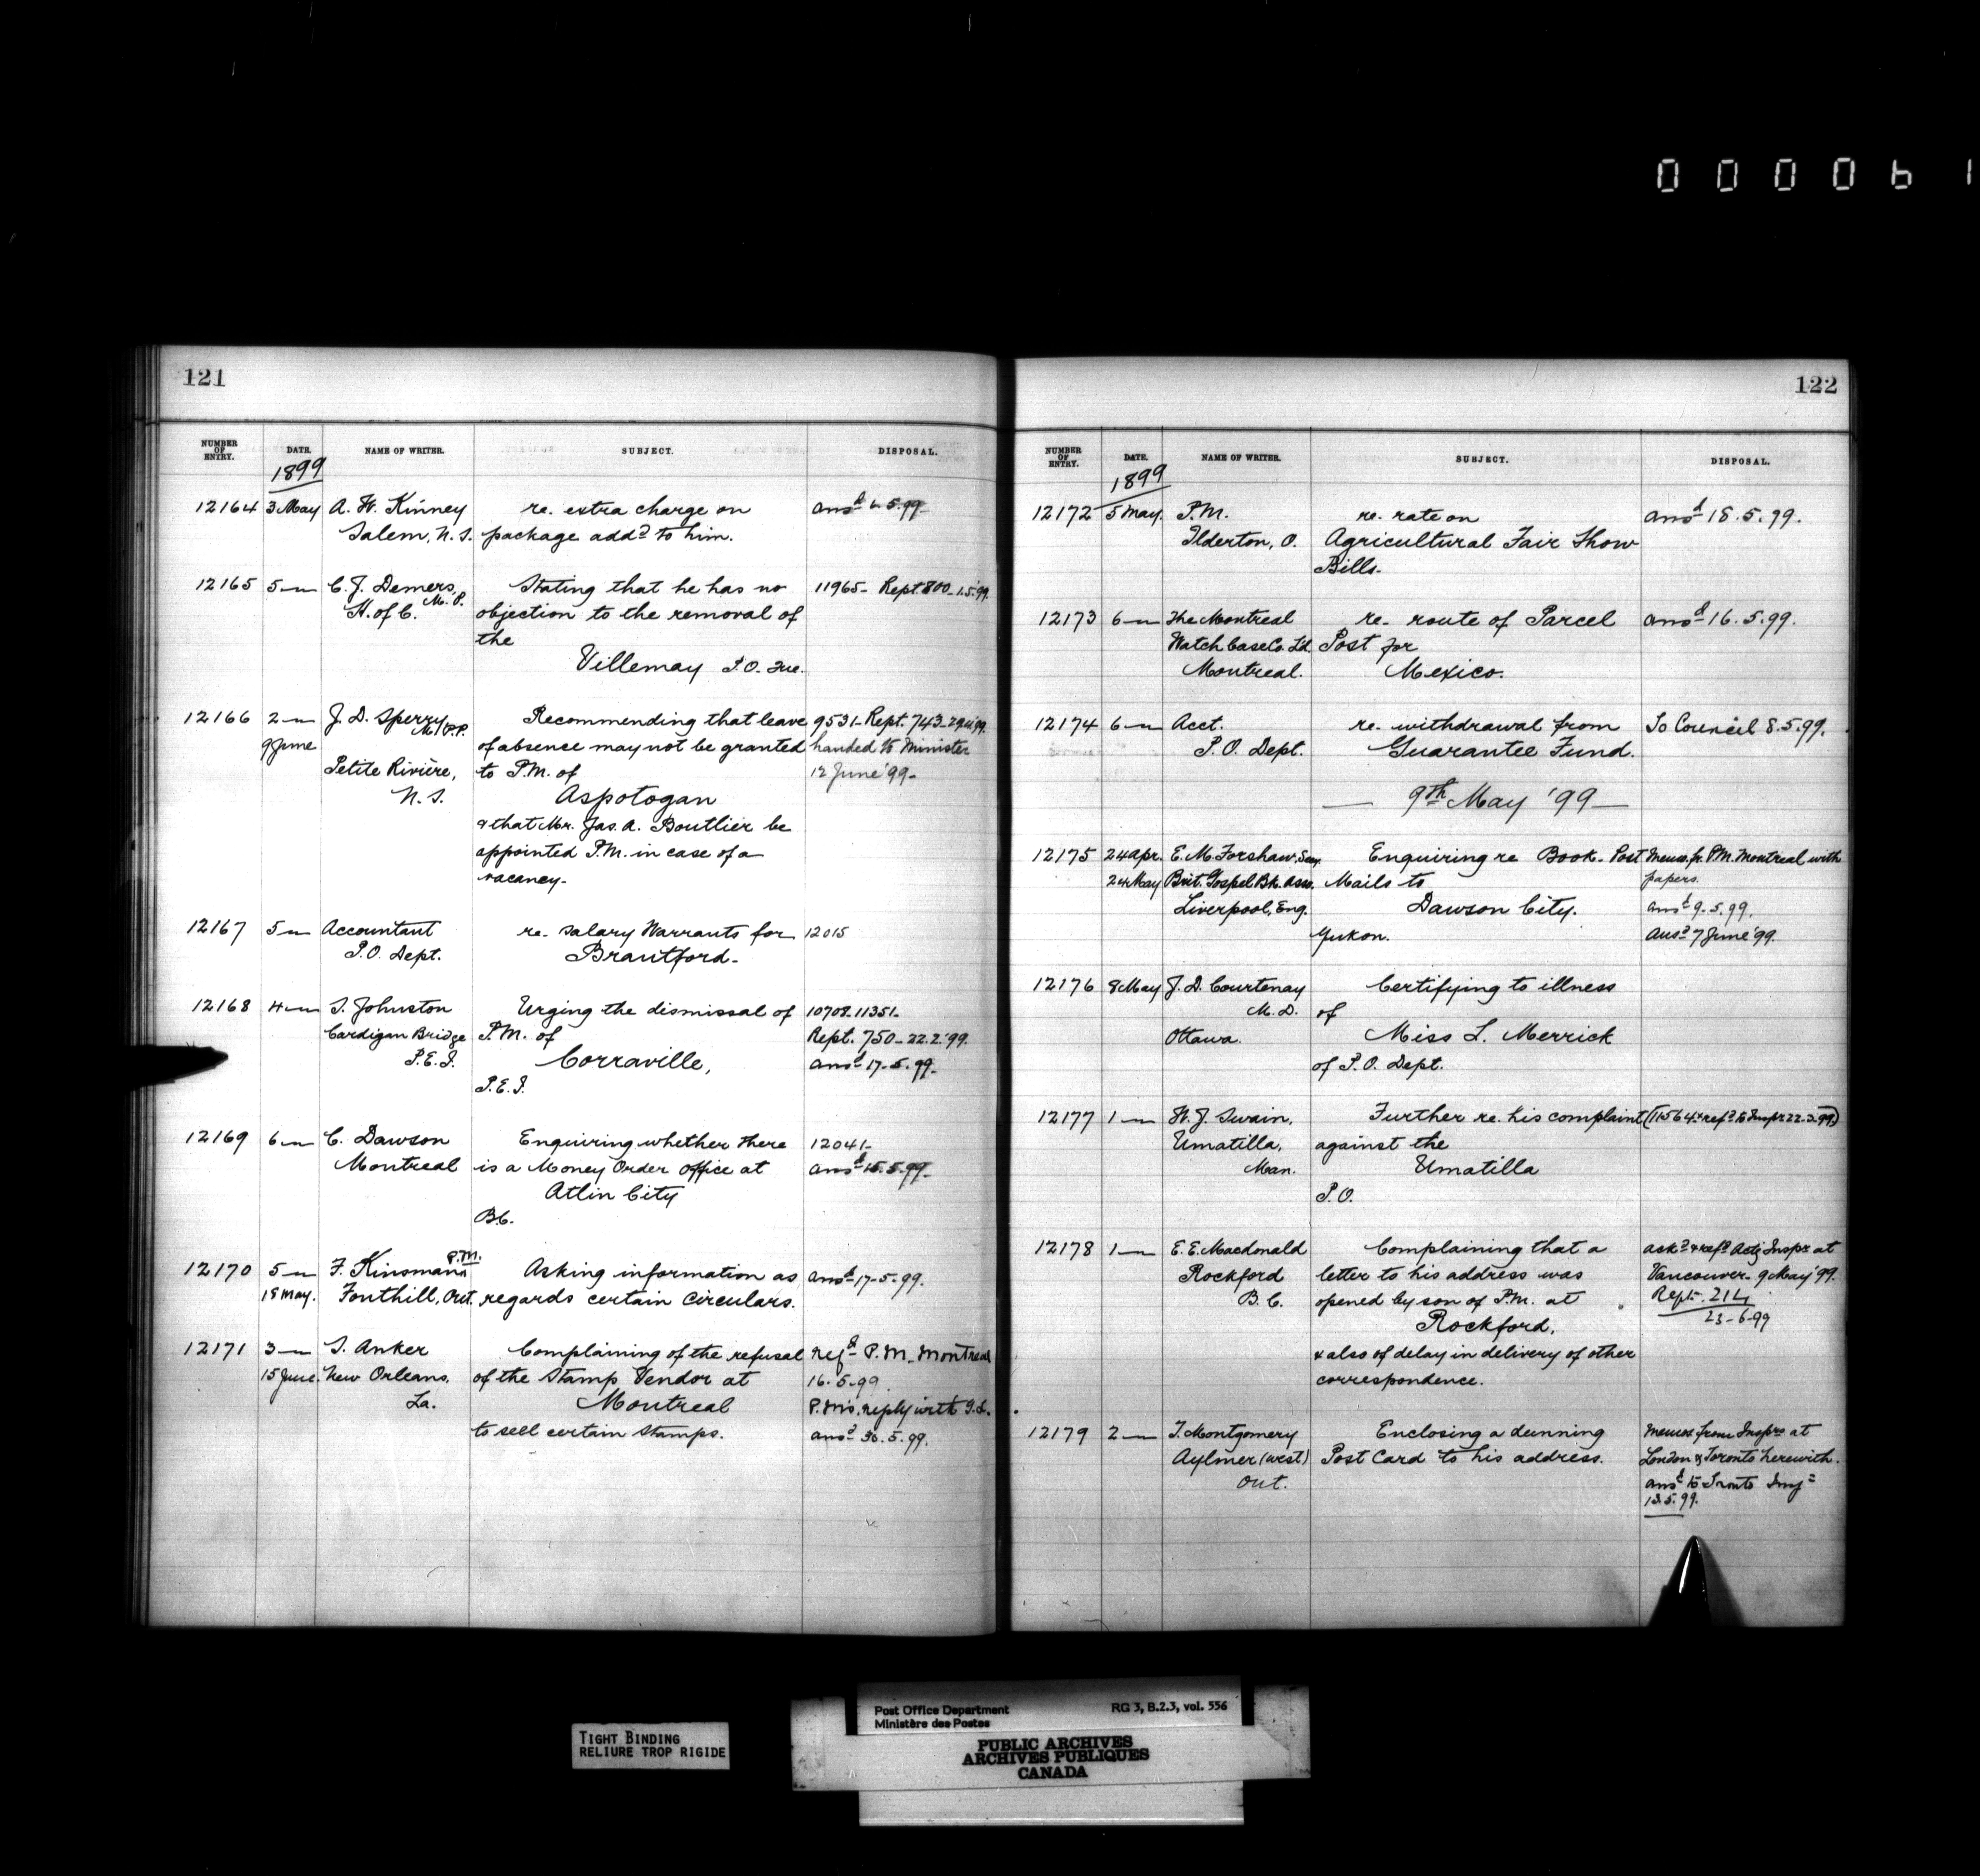 000061
121
NUMBER OF ENTRY. DATE. NAME OF WRITER. SUBJECT. DISPOSAL.
1899
12164 3 May A. W. Kinney re. extra charge on ansd 5.99
Salem, N.S. package addd to him.
12165 5 — C. J. Demers, Stating that he has no 11965 - Rept. 800 - 1.5.'99.
M.P. H. of C. objection to the removal of
the
Villemay P.O. Que.
12166 2 — J. D. Sperry M.P.P. Recommending that leave 9531 - Rept. 743 -
9 June of absence may not be granted handed to Minister
Petite Rivière, to P.M. of 12 June '99 -
N.S. Aspotogan
& that Mr. Jas. A. Boutlier be
appointed P.M. in case of a
vacancy -
12167 5 — Accountant re. salary Warrants for 12015
P.O. Dept. Brantford -
12168 4 — S. Johnston Urging the dismissal of 10708. 11351 -
Cardigan Bridge P.M. of Rept. 750 - 22.2.'99.
P.E.I. Corraville, ansd 17-5.99 -
P.E.I.
12169 6 — C. Dawson Enquiring whether there 12041 -
Montreal is a Money Order office at ansd 15.5.99 -
Atlin City
B.C.
12170 5 — F. Kinsmann P.M. Asking information as ansd 17-5.99.
18 May. Fonthill, Ont. regards certain circulars.
12171 3 — S. Anker Complaining of the refusal Refd P.M. Montreal
15 June. New Orleans, of the Stamp Vendor at 16.5.99.
La. Montreal P.M's. reply with
to sell certain stamps. ansd 30.5.99.
122
NUMBER OF ENTRY. DATE. NAME OF WRITER. SUBJECT. DISPOSAL.
1899
12172 5 May. P.M. re. rate on ansd 18.5.99.
Ilderton, O. Agricultural Fair Show
Bills.
12173 6 — The Montreal re. route of Parcel ansd 16.5.99.
Watch Case Co. Ld. Post for
Montreal. Mexico.
12174 6 — Acct. re. withdrawal from To Council 8.5.99.
P.O. Dept. Guarantee Fund.
— 9th May '99 —
12175 24 Apr. E. M. Forshaw, Secy. Enquiring re Book-Post Memo. fr. P.M. Montreal with
24 May Brit. Gospel Bk. Assn. Mails to papers.
Liverpool, Eng. Dawson City. ansd 9.5.99.
Yukon. ansd 7 June '99.
12176 8 May J. D. Courtenay Certifying to illness
M.D. of
Ottawa. Miss L. Merrick
of P.O. Dept.
12177 1 — W. J. Swain, Further re. his complaint (11564 refd to Inspr 22-3-99)
Umatilla, against the
Man. Umatilla
P.O.
12178 1 — E. E. Macdonald Complaining that a ackd & refd Actg Inspr at
Rockford letter to his address was Vancouver - 9 May '99.
B.C. opened by son of P.M. at Rept. 214
Rockford, 23-6-99
& also of delay in delivery of other
correspondence.
12179 2 — T. Montgomery Enclosing a dunning Memos from Insprs at
Aylmer (West) Post Card to his address. London & Toronto herewith.
Ont. ansd to Toronto
13.5.99.
TIGHT BINDING
RELIURE TROP RIGIDE
Post Office Department RG 3, B.2.3, vol. 556
Ministère des Postes
PUBLIC ARCHIVES
ARCHIVES PUBLIQUES
CANADA